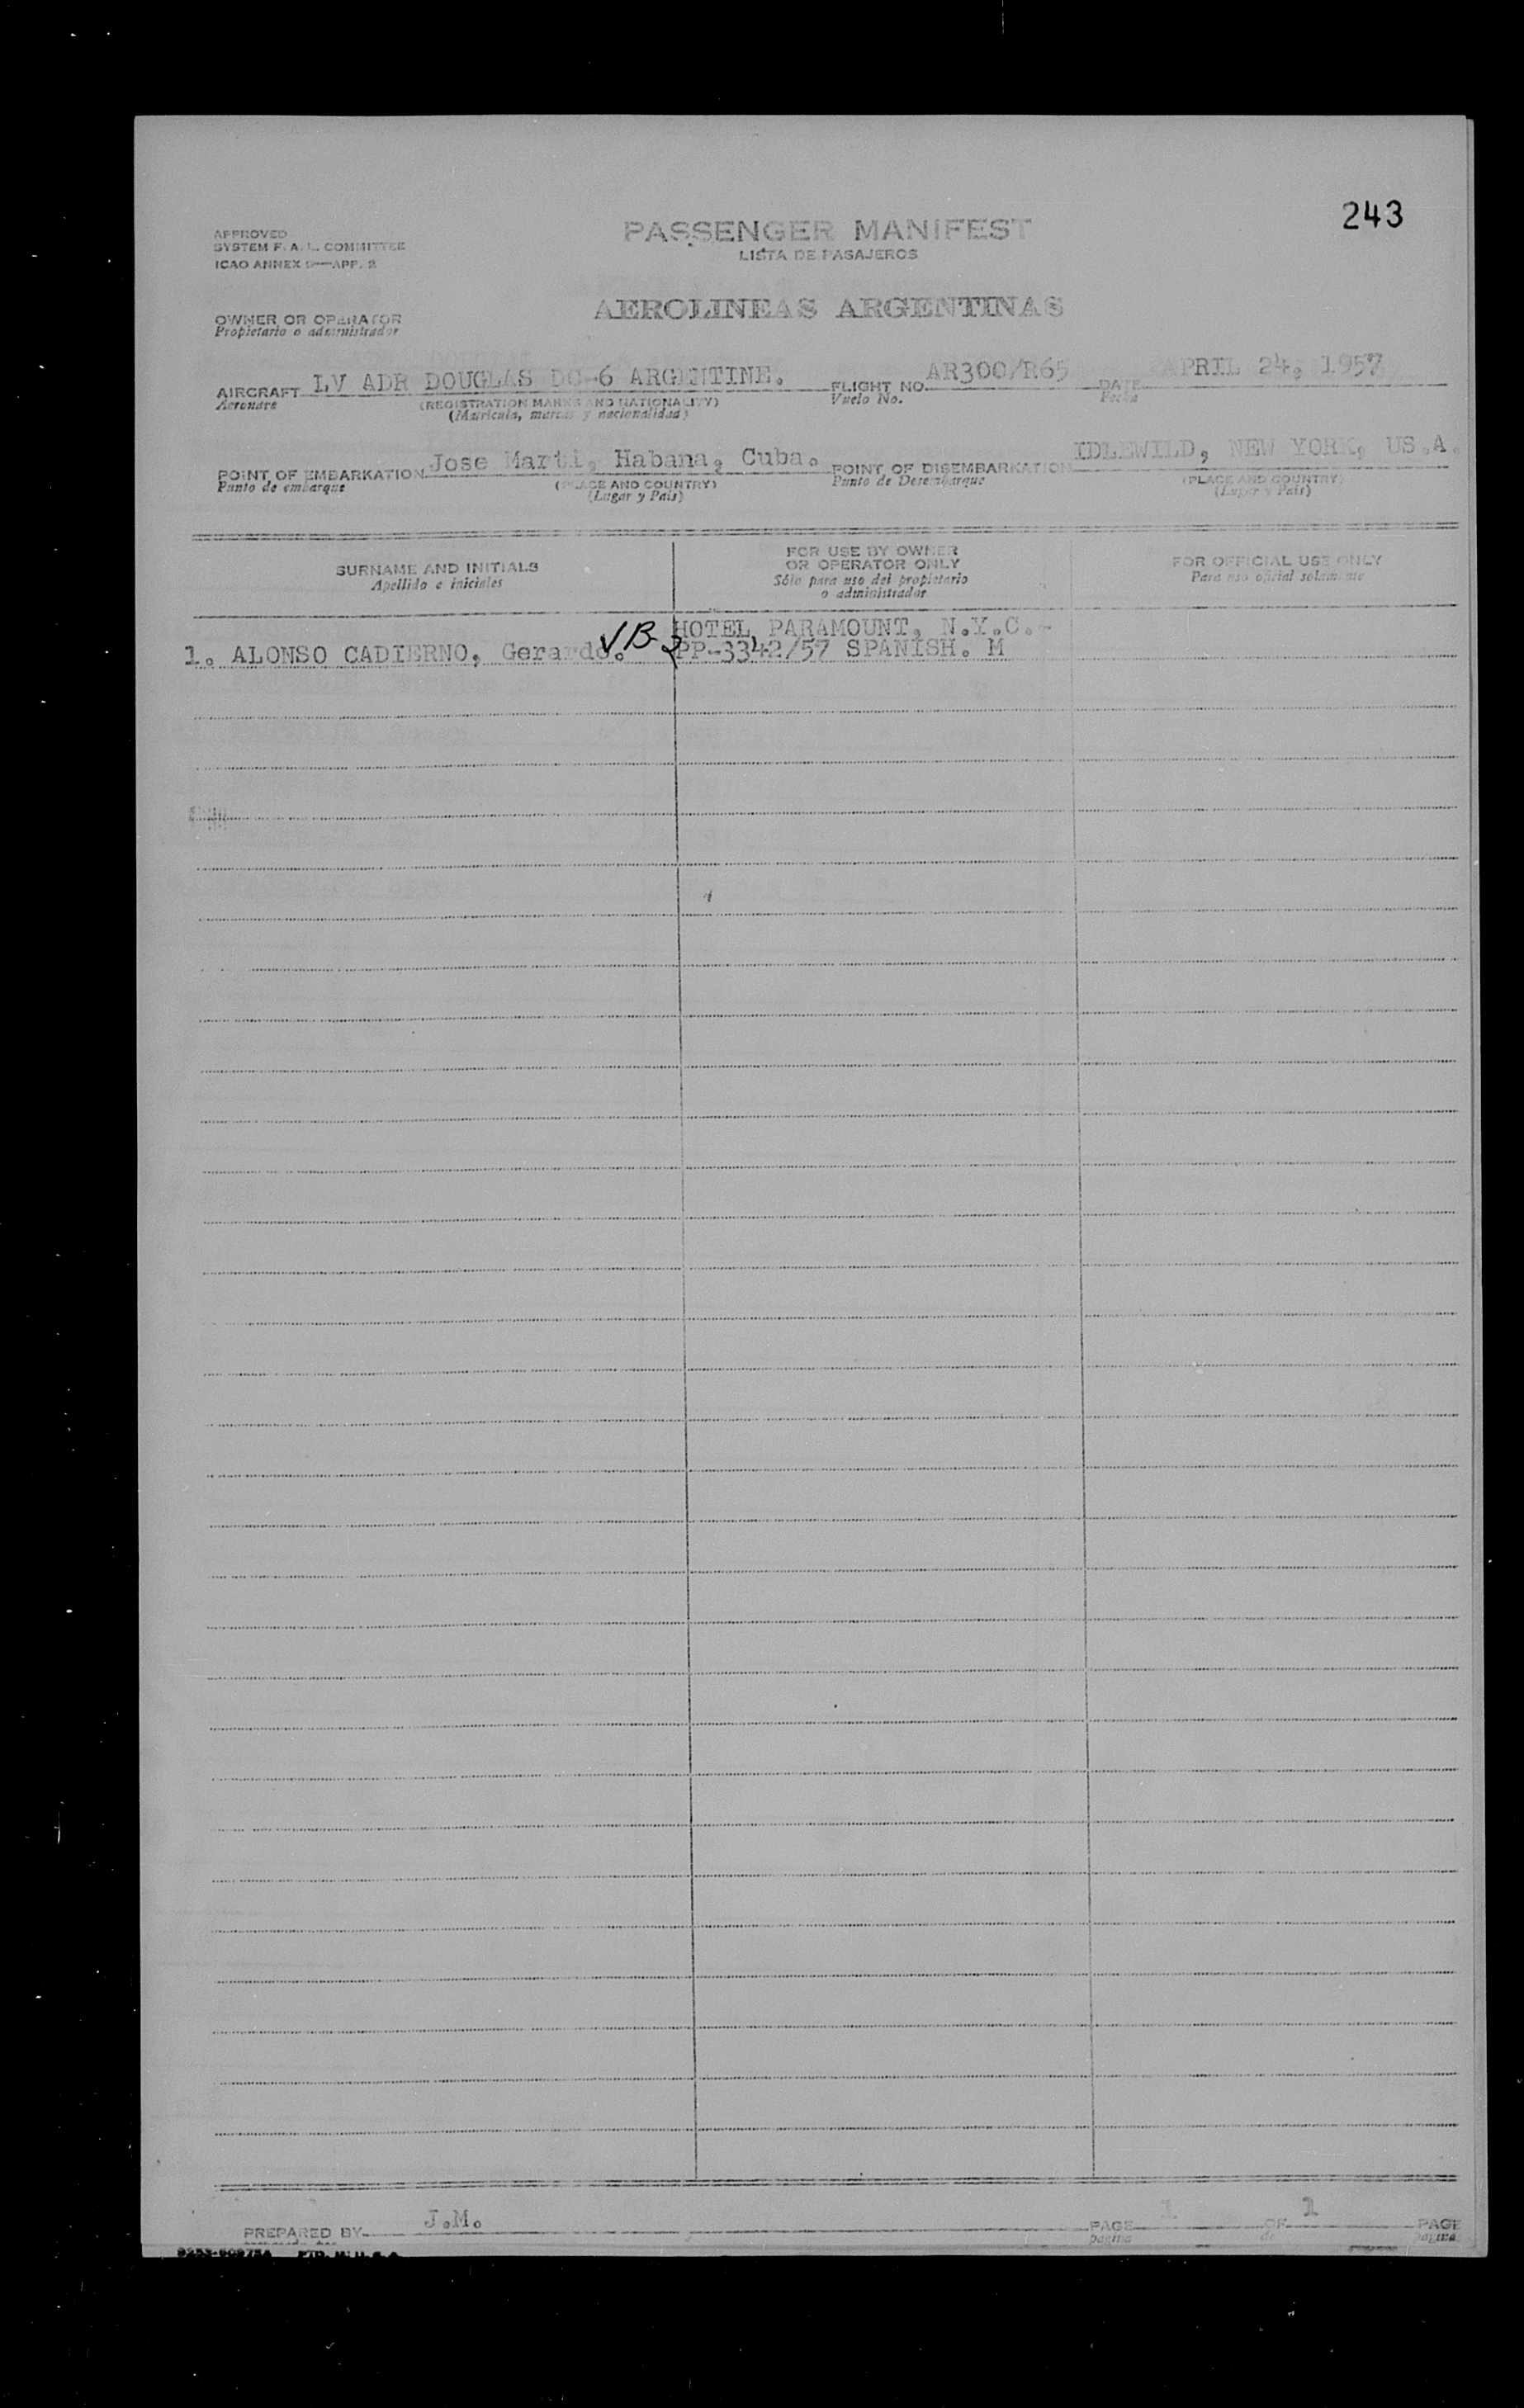 243
APPROVED
SYSTEM F. A. L. COMMITTEE
ICAO ANNEX 9—APP. 2
PASSENGER MANIFEST
LISTA DE PASAJEROS
AEROLINEAS ARGENTINAS
OWNER OR OPERATOR
Propietario o administrador
AIRCRAFT LV ADR DOUGLAS DC-6 ARGENTINE. FLIGHT NO. AR300/R65 DATE APRIL 24, 1957
Aeronave (REGISTRATION MARKS AND NATIONALITY) Vuelo No. Fecha
(Matricula, marcas y nacionalidad)
POINT OF EMBARKATION Jose Marti, Habana, Cuba. POINT OF DISEMBARKATION IDLEWILD, NEW YORK, US.A.
Punto de embarque (PLACE AND COUNTRY) Punto de Desembarque (PLACE AND COUNTRY)
(Lugar y Pais) (Lugar y Pais)
SURNAME AND INITIALS
Apellido e iniciales
FOR USE BY OWNER
OR OPERATOR ONLY
Sólo para uso del propietario
o administrador
FOR OFFICIAL USE ONLY
Para uso oficial solamente
HOTEL PARAMOUNT, N.Y.C.-
1. ALONSO CADIERNO, Gerardo. √B-2 PP-3342/57 SPANISH. M
PREPARED BY J.M. PAGE 1 OF 1 PAGE
pagina de pagina